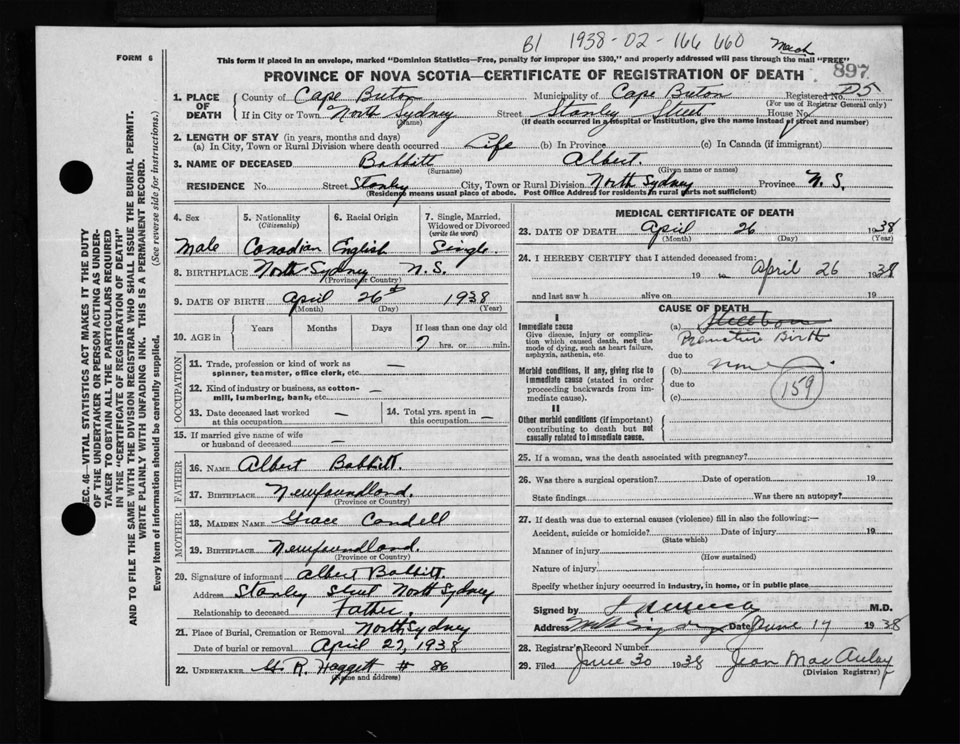 B1 1938-02-166 660
March
FORM 6
This form if placed in an envelope, marked "Dominion Statistics—Free, penalty for improper use $300," and properly addressed will pass through the mail "FREE"
PROVINCE OF NOVA SCOTIA—CERTIFICATE OF REGISTRATION OF DEATH 897
1. PLACE OF DEATH County of Cape Breton Municipality of Cape Breton Registered No. D5
(For use of Registrar General only)
If in City or Town North Sydney Street Stanley Street House No.
(Name) (If death occurred in a hospital or institution, give the name instead of street and number)
2. LENGTH OF STAY (in years, months and days)
(a) In City, Town or Rural Division where death occurred Life (b) In Province (c) In Canada (if immigrant)
3. NAME OF DECEASED Babbitt Albert.
(Surname) (Given name or names)
RESIDENCE No. Street Stanley City, Town or Rural Division North Sydney Province N. S.
(Residence means usual place of abode. Post Office Address for residents in rural parts not sufficient)
4. Sex 5. Nationality (Citizenship) 6. Racial Origin 7. Single, Married, Widowed or Divorced (write the word)
Male Canadian English Single.
8. BIRTHPLACE North Sydney N.S.
(Province or Country)
9. DATE OF BIRTH April 26th 1938
(Month) (Day) (Year)
10. AGE in Years Months Days If less than one day old
7 hrs. or min.
OCCUPATION
11. Trade, profession or kind of work as spinner, teamster, office clerk, etc. —
12. Kind of industry or business, as cotton-mill, lumbering, bank, etc. —
13. Date deceased last worked at this occupation — 14. Total yrs. spent in this occupation —
15. If married give name of wife or husband of deceased —
FATHER
16. NAME Albert Babbitt.
17. BIRTHPLACE Newfoundland.
(Province or Country)
MOTHER
18. MAIDEN NAME Grace Condell
19. BIRTHPLACE Newfoundland.
(Province or Country)
20. Signature of informant Albert Babbitt.
Address Stanley Street North Sydney
Relationship to deceased Father.
21. Place of Burial, Cremation or Removal North Sydney
Date of burial or removal April 27, 1938
22. UNDERTAKER R. Haggett # 86
(Name and address)
MEDICAL CERTIFICATE OF DEATH
23. DATE OF DEATH April 26 1938
(Month) (Day) (Year)
24. I HEREBY CERTIFY that I attended deceased from:
19 to April 26 1938
and last saw h alive on 19
CAUSE OF DEATH
I
Immediate cause (a) Stillborn
Give disease, injury or complication which caused death, not the mode of dying, such as heart failure, asphyxia, asthenia, etc.
Premature Birth
due to
Morbid conditions, if any, giving rise to immediate cause (stated in order proceeding backwards from immediate cause).
(b) none
due to
(c)
159
II
Other morbid conditions (if important) contributing to death but not causally related to immediate cause.
25. If a woman, was the death associated with pregnancy?
26. Was there a surgical operation? Date of operation 19
State findings Was there an autopsy?
27. If death was due to external causes (violence) fill in also the following:—
Accident, suicide or homicide? Date of injury 19
(State which)
Manner of injury
(How sustained)
Nature of injury
Specify whether injury occurred in industry, in home, or in public place
Signed by M.D.
Address Date June 17 1938
28. Registrar's Record Number
29. Filed June 30 1938 Jean MacAulay
(Division Registrar)
SEC. 46—VITAL STATISTICS ACT MAKES IT THE DUTY
OF THE UNDERTAKER OR PERSON ACTING AS UNDER-
TAKER TO OBTAIN ALL THE PARTICULARS REQUIRED
IN THE "CERTIFICATE OF REGISTRATION OF DEATH"
AND TO FILE THE SAME WITH THE DIVISION REGISTRAR WHO SHALL ISSUE THE BURIAL PERMIT.
WRITE PLAINLY WITH UNFADING INK. THIS IS A PERMANENT RECORD.
Every item of information should be carefully supplied. (See reverse side for instructions.)